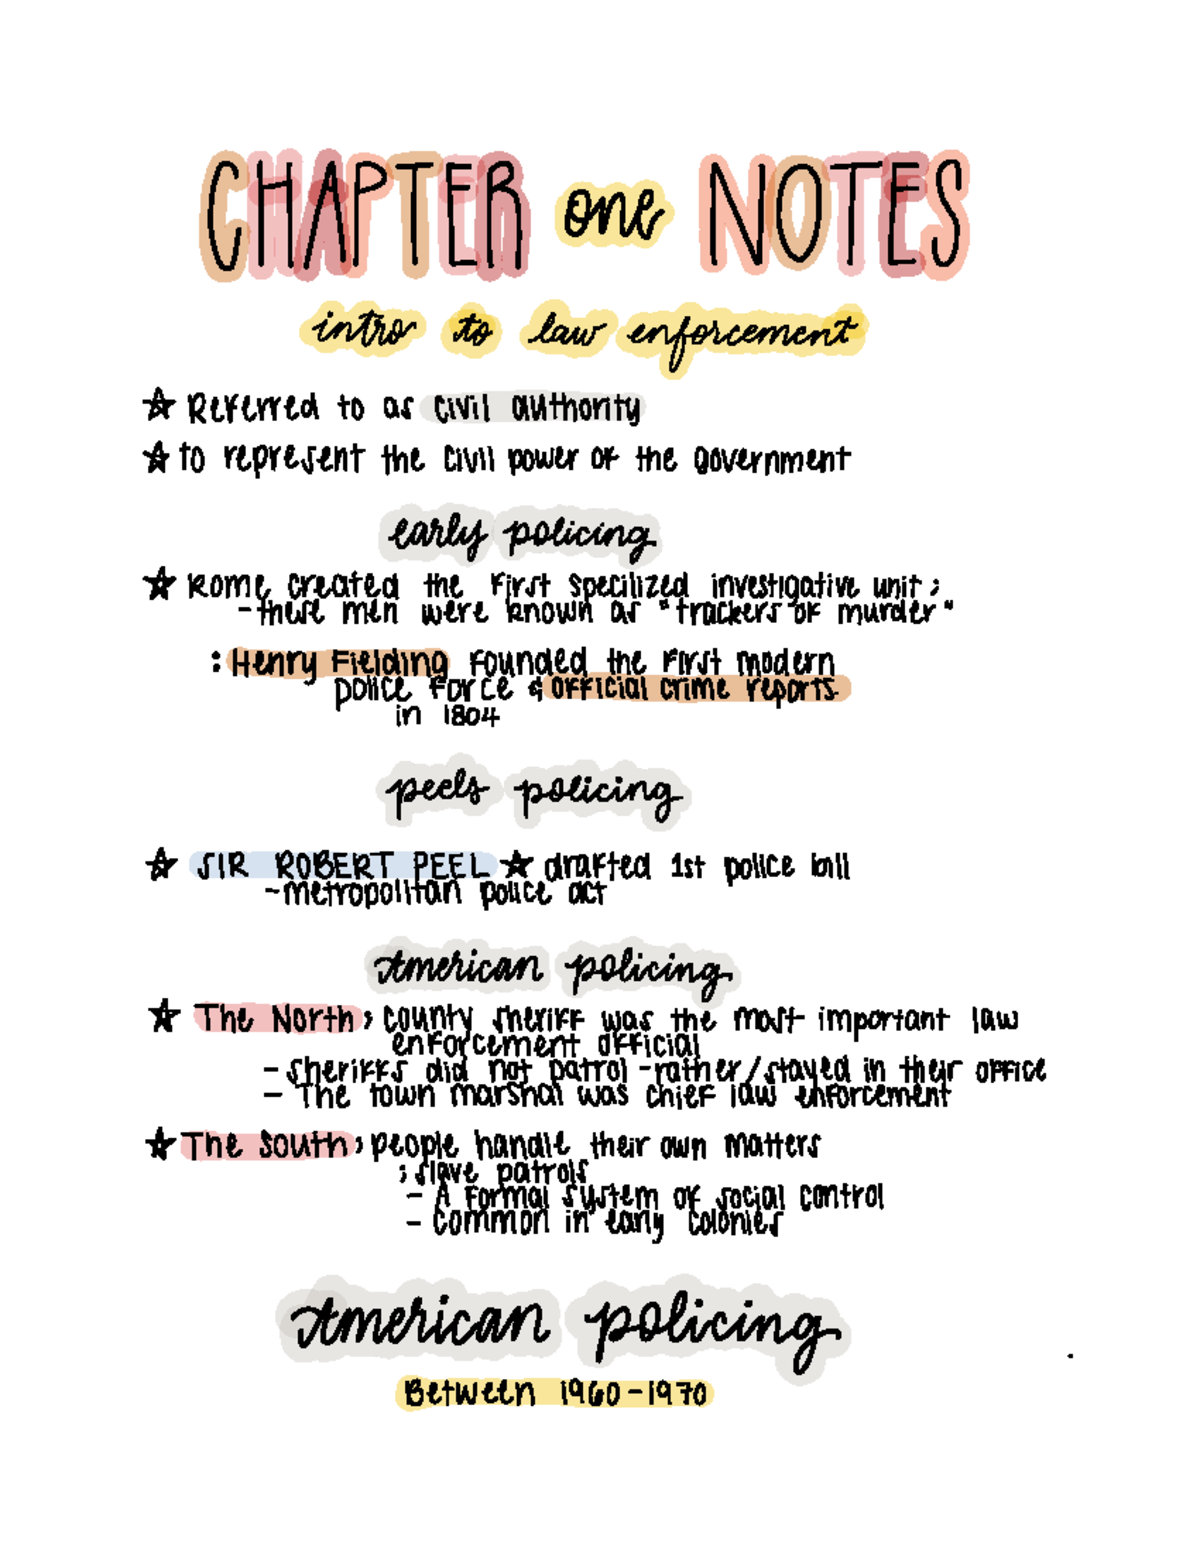 CHAPTER one NOTES
intro to law enforcement
☆ Referred to as civil authority
☆ to represent the civil power of the government
early policing
☆ Rome created the first specilized investigative unit ;
- these men were known as "trackers of murder"
: Henry Fielding founded the first modern
police force & official crime reports
in 1804
peels policing
☆ SIR ROBERT PEEL ★ drafted 1st police bill
- metropolitan police act
American policing
☆ The North ; county sheriff was the most important law
enforcement official
- sheriffs did not patrol - rather/stayed in their office
- The town marshal was chief law enforcement
☆ The South ; people handle their own matters
; slave patrols
- A formal system of social control
- common in early colonies
American policing
Between 1960-1970